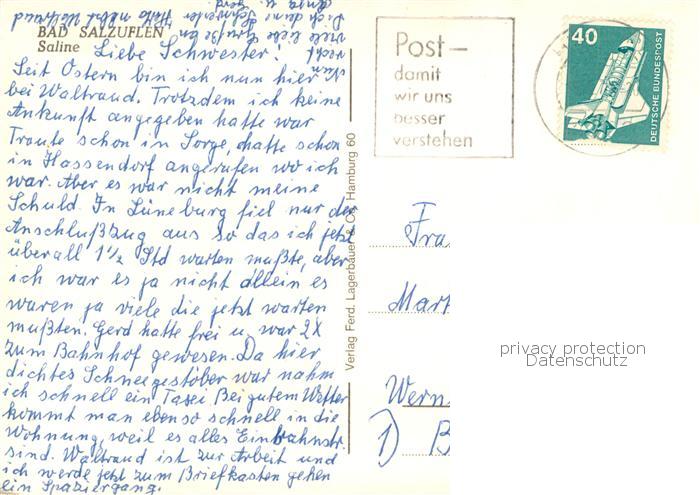 BAD SALZUFLEN
Saline
Liebe Schwester!
Seit Ostern bin ich nun hier
bei Waltraud. Trotzdem ich keine
Ankunft angegeben hatte war
Traute schon in Sorge, hatte schon
in Hassendorf angerufen wo ich
war. Aber es war nicht meine
Schuld. In Lüneburg fiel nur der
Anschlußzug aus so das ich jetzt
überall 1½ Std warten mußte, aber
ich war es ja nicht allein es
waren ja viele die jetzt warten
mußten. Gerd hatte frei u. war 2X
zum Bahnhof gewesen. Da hier
dichtes Schneegestöber war nahm
ich schnell ein Taxi Bei gutem Wetter
kommt man ebenso schnell in die
Wohnung, weil es alles Einbahnstr.
sind. Waltraud ist zur Arbeit und
ich werde jetzt zum Briefkasten gehen
ein Spaziergang.
recht
viele liebe Grüße an
Dich deine Schwester
Waltraud
u. Gerd
Verlag Ferd. Lagerbauer & Co, Hamburg 60
Post –
damit
wir uns
besser
verstehen
40
DEUTSCHE BUNDESPOST
Fra
Mart
Wern
1) B
privacy protection
Datenschutz